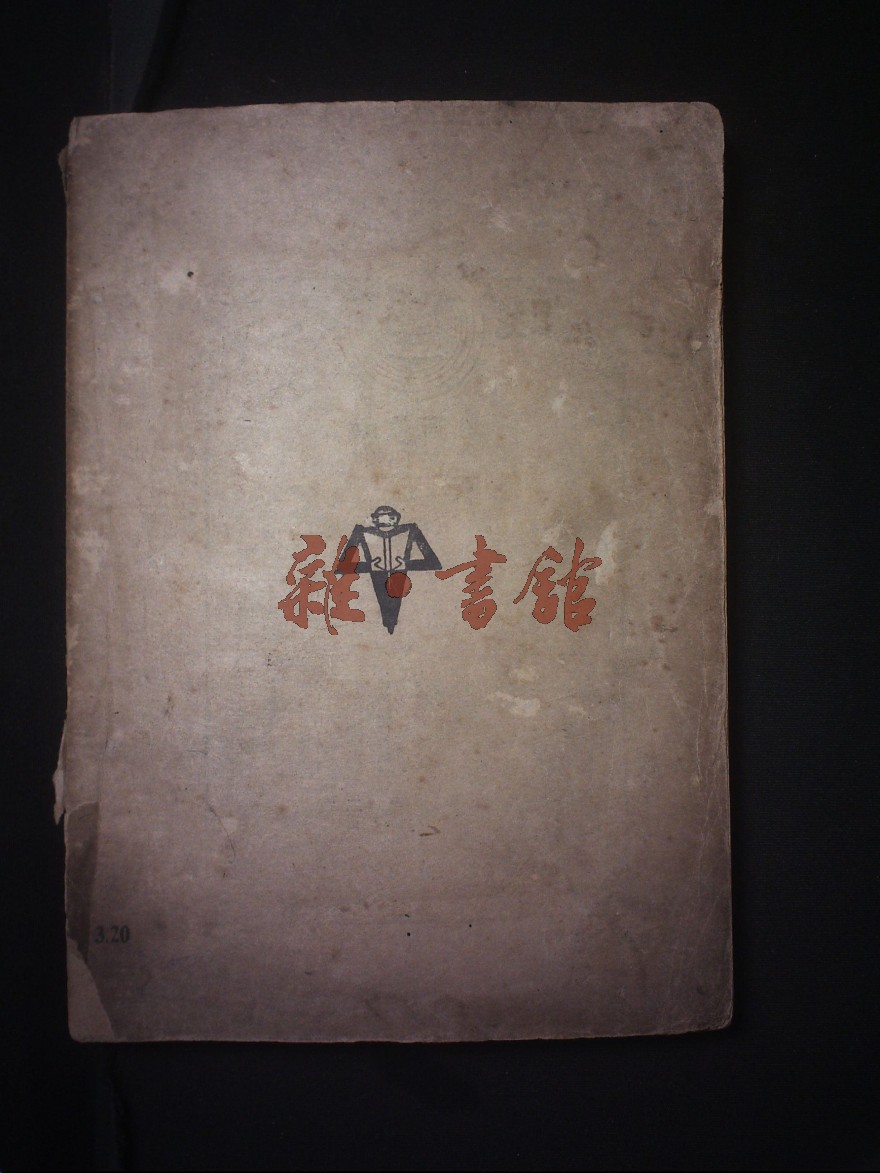 雜·書館
3.20